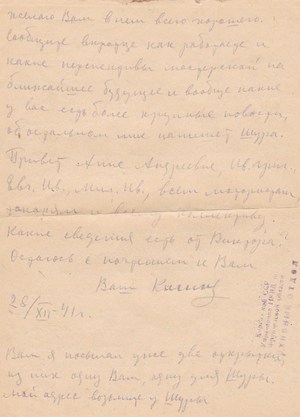 желаю Вам всего хорошего.
Сообщите вкратце как работаете и
какие перспективы мастерской на
ближайшее будущее и вообще какие
у вас есть более крупные новости,
об остальном мне напишет Шура.
Привет Анне Андреевне, Ив. Григ.,
Евг. Ив., Мих. Ив., всем
токарям и всему коллективу.
Какие сведения есть от Виктора?
Остаюсь с почтением к Вам
Ваш
26/XII-41 г.
Вам я посылал уже две открытки
из них одну Вам одну для Шуры.
Мой адрес возьмите у Шуры
отдел